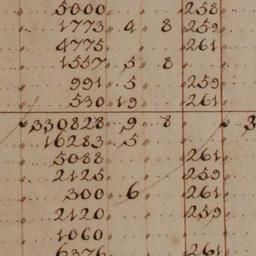 5000 258
1773 4 8 259
4775 261
1557 5 8
991 5 259
530 19 261
330828 9 8 3
16283 5
5088 261
2125 259
300 6 261
2120 259
1060
6376 261